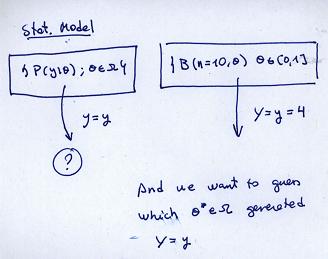 Stat. Model
{ P(y|θ) ; θ∈Ω }
{ B(n=10,θ) θ∈[0,1]
y=y
Y=y=4
?
And we want to guess
which θ*∈Ω generated
Y=y